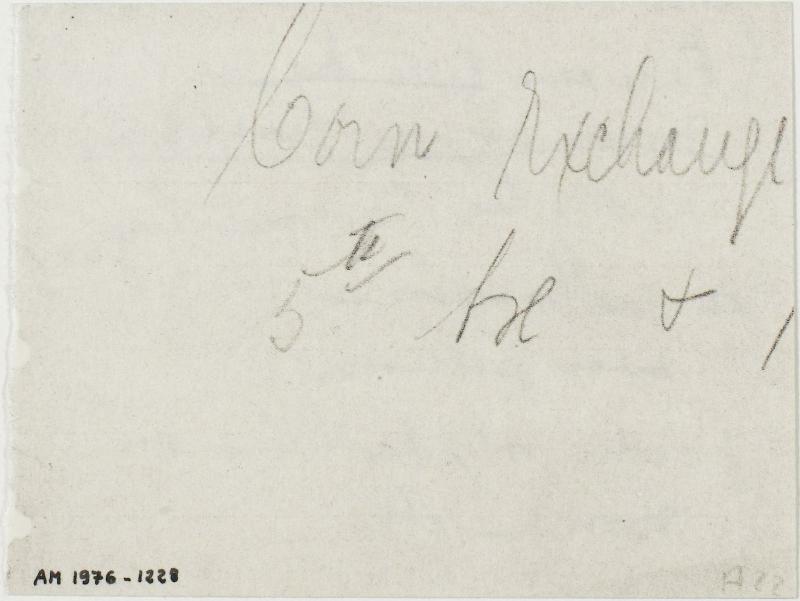 Corn Exchange
5th Ave &
AM 1976-1228